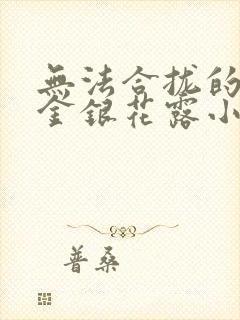 無法合拢的
金銀花露小
普桑